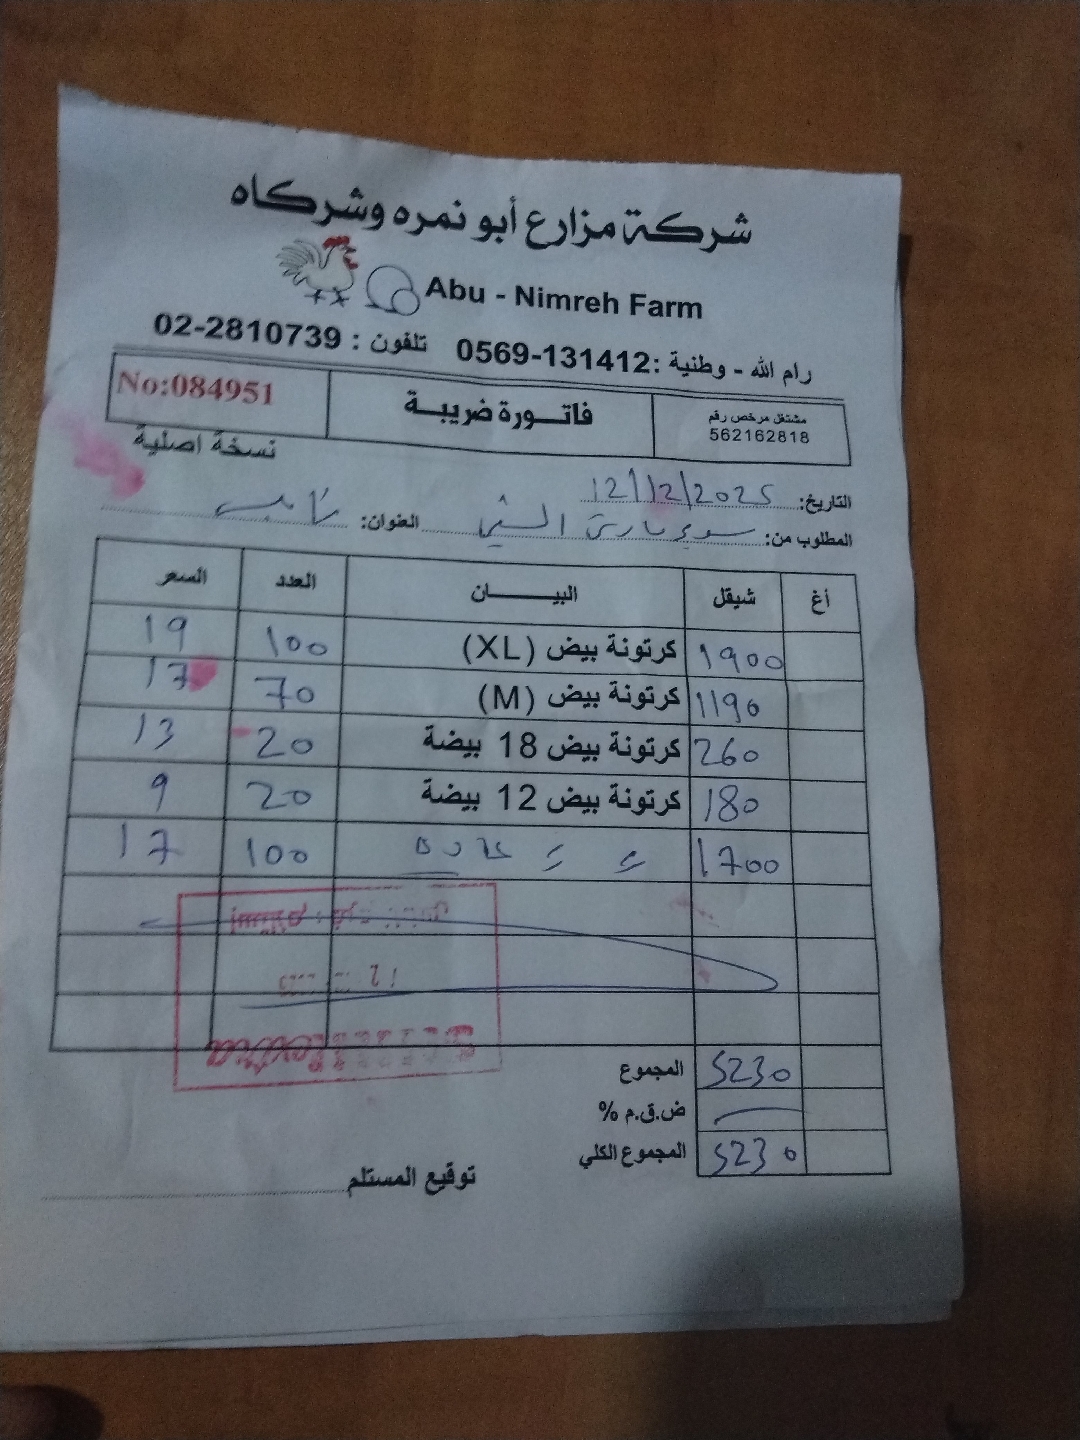 شركة مزارع أبو نمره وشركاه
Abu - Nimreh Farm
رام الله - وطنية :0569-131412 تلفون : 02-2810739
مشتغل مرخص رقم
562162818
فاتورة ضريبة
No:084951
نسخة اصلية
التاريخ: 12/12/2025
المطلوب من: العنوان:
أغ شيقل البيان العدد السعر
1900 كرتونة بيض (XL) 100 19
1190 كرتونة بيض (M) 70 17
260 كرتونة بيض 18 بيضة 20 13
180 كرتونة بيض 12 بيضة 20 9
1700 100 17
المجموع 5230
ض.ق.م %
المجموع الكلي 5230
توقيع المستلم